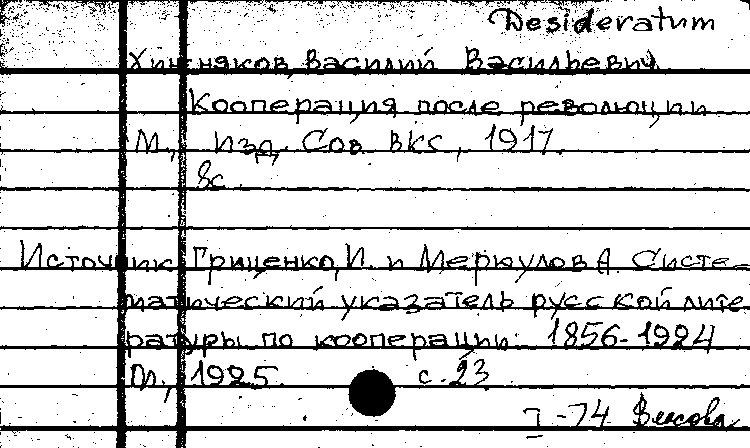 Desideratum
Хижняков, Василий Васильевич
Кооперация после революции
М., Изд. Сов ВКС, 1917.
8с.
Источник Гриценко, И. и Меркулов А Систе-
матический указатель русской лите
ратуры по кооперации 1856-1924
Л., 1925. с. 23
I-74 Власова